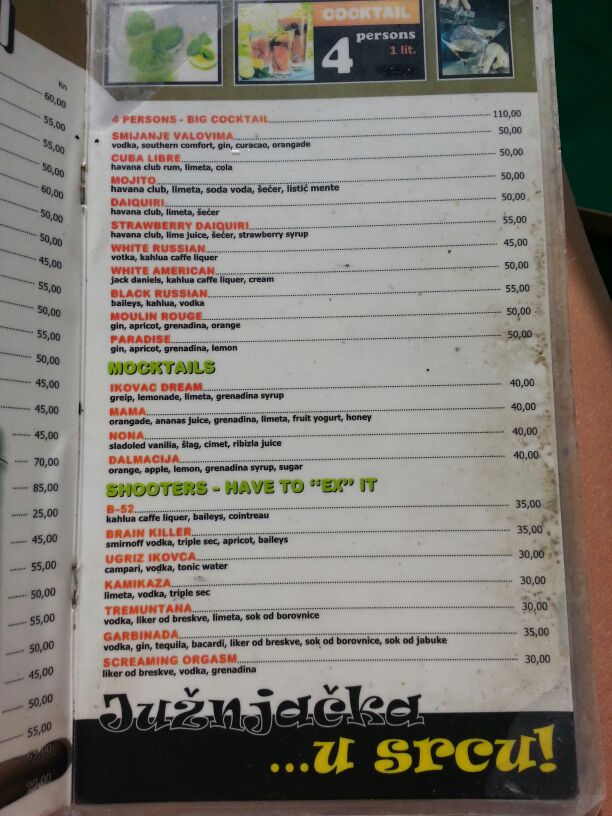 Kn
60,00
55,00
55,00
50,00
60,00
50,00
50,00
55,00
50,00
55,00
55,00
50,00
50,00
45,00
45,00
45,00
70,00
85,00
25,00
45,00
55,00
50,00
50,00
50,00
50,00
45,00
50,00
55,00
65,00
90,00
COCKTAIL
4 persons
1 lit.
4 PERSONS - BIG COCKTAIL 110,00
SMIJANJE VALOVIMA 50,00
vodka, southern comfort, gin, curacao, orangade
CUBA LIBRE 50,00
havana club rum, limeta, cola
MOJITO 50,00
havana club, limeta, soda voda, šećer, listić mente
DAIQUIRI 50,00
havana club, limeta, šećer
STRAWBERRY DAIQUIRI 55,00
havana club, lime juice, šećer, strawberry syrup
WHITE RUSSIAN 45,00
votka, kahlua caffe liquer
WHITE AMERICAN 50,00
jack daniels, kahlua caffe liquer, cream
BLACK RUSSIAN 55,00
baileys, kahlua, vodka
MOULIN ROUGE 50,00
gin, apricot, grenadina, orange
PARADISE 50,00
gin, apricot, grenadina, lemon
MOCKTAILS
IKOVAC DREAM 40,00
greip, lemonade, limeta, grenadina syrup
MAMA 40,00
orangade, ananas juice, grenadina, limeta, fruit yogurt, honey
NONA 40,00
sladoled vanilia, šlag, cimet, ribizla juice
DALMACIJA 40,00
orange, apple, lemon, grenadina syrup, sugar
SHOOTERS - HAVE TO “EX” IT
B-52 35,00
kahlua caffe liquer, baileys, cointreau
BRAIN KILLER 35,00
smirnoff vodka, triple sec, apricot, baileys
UGRIZ IKOVCA 30,00
campari, vodka, tonic water
KAMIKAZA 30,00
limeta, vodka, triple sec
TREMUNTANA 30,00
vodka, liker od breskve, limeta, sok od borovnice
GARBINADA 35,00
vodka, gin, tequila, bacardi, liker od breskve, sok od borovnice, sok od jabuke
SCREAMING ORGASM 30,00
liker od breskve, vodka, grenadina
Južnjačka
...u srcu!